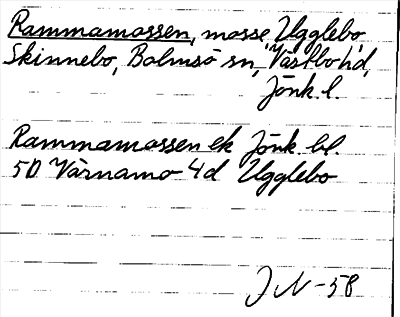 Rammamossen, mosse, Ugglebo
Skinnebo, Bolmsö sn, Västbo hd,
Jönk. l.
Rammamossen ek Jönk. bl.
5D Värnamo 4d Ugglebo
J N -58